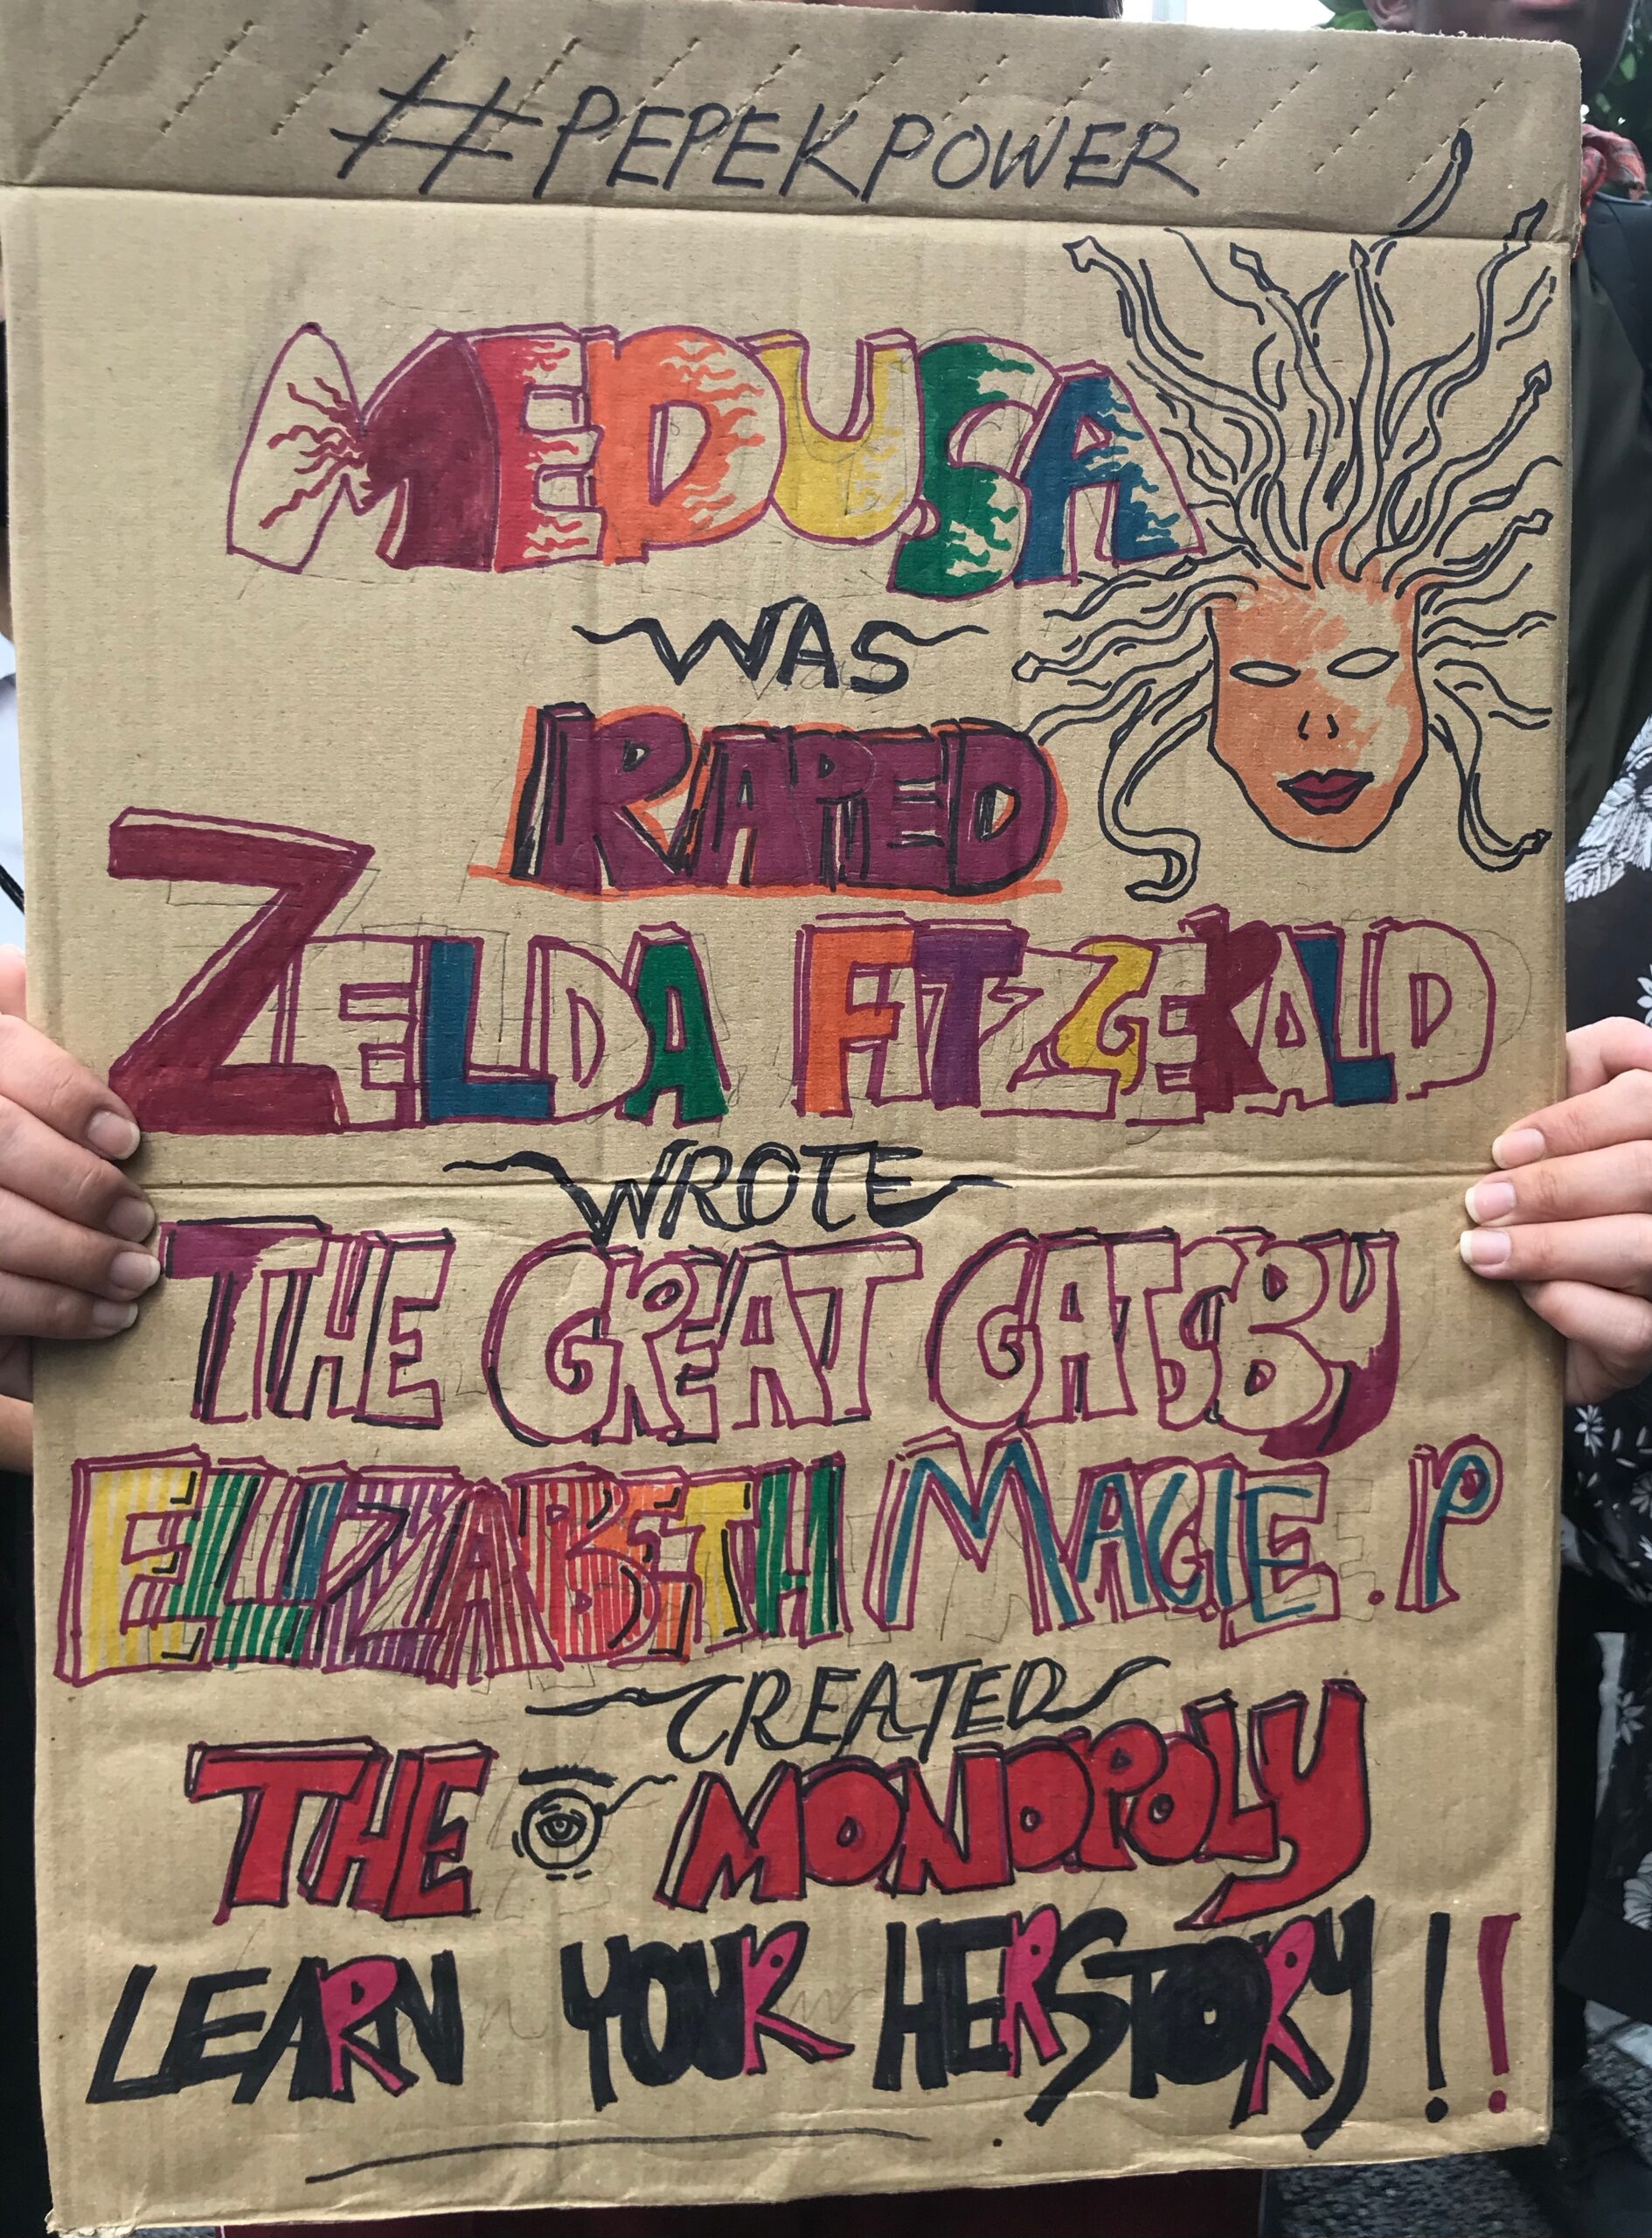 #PEPEKPOWER
MEDUSA
WAS
RAPED
ZELDA FITZGERALD
WROTE
THE GREAT GATSBY
ELIZABETH MAGIE . P
CREATED
THE MONOPOLY
LEARN YOUR HERSTORY !!